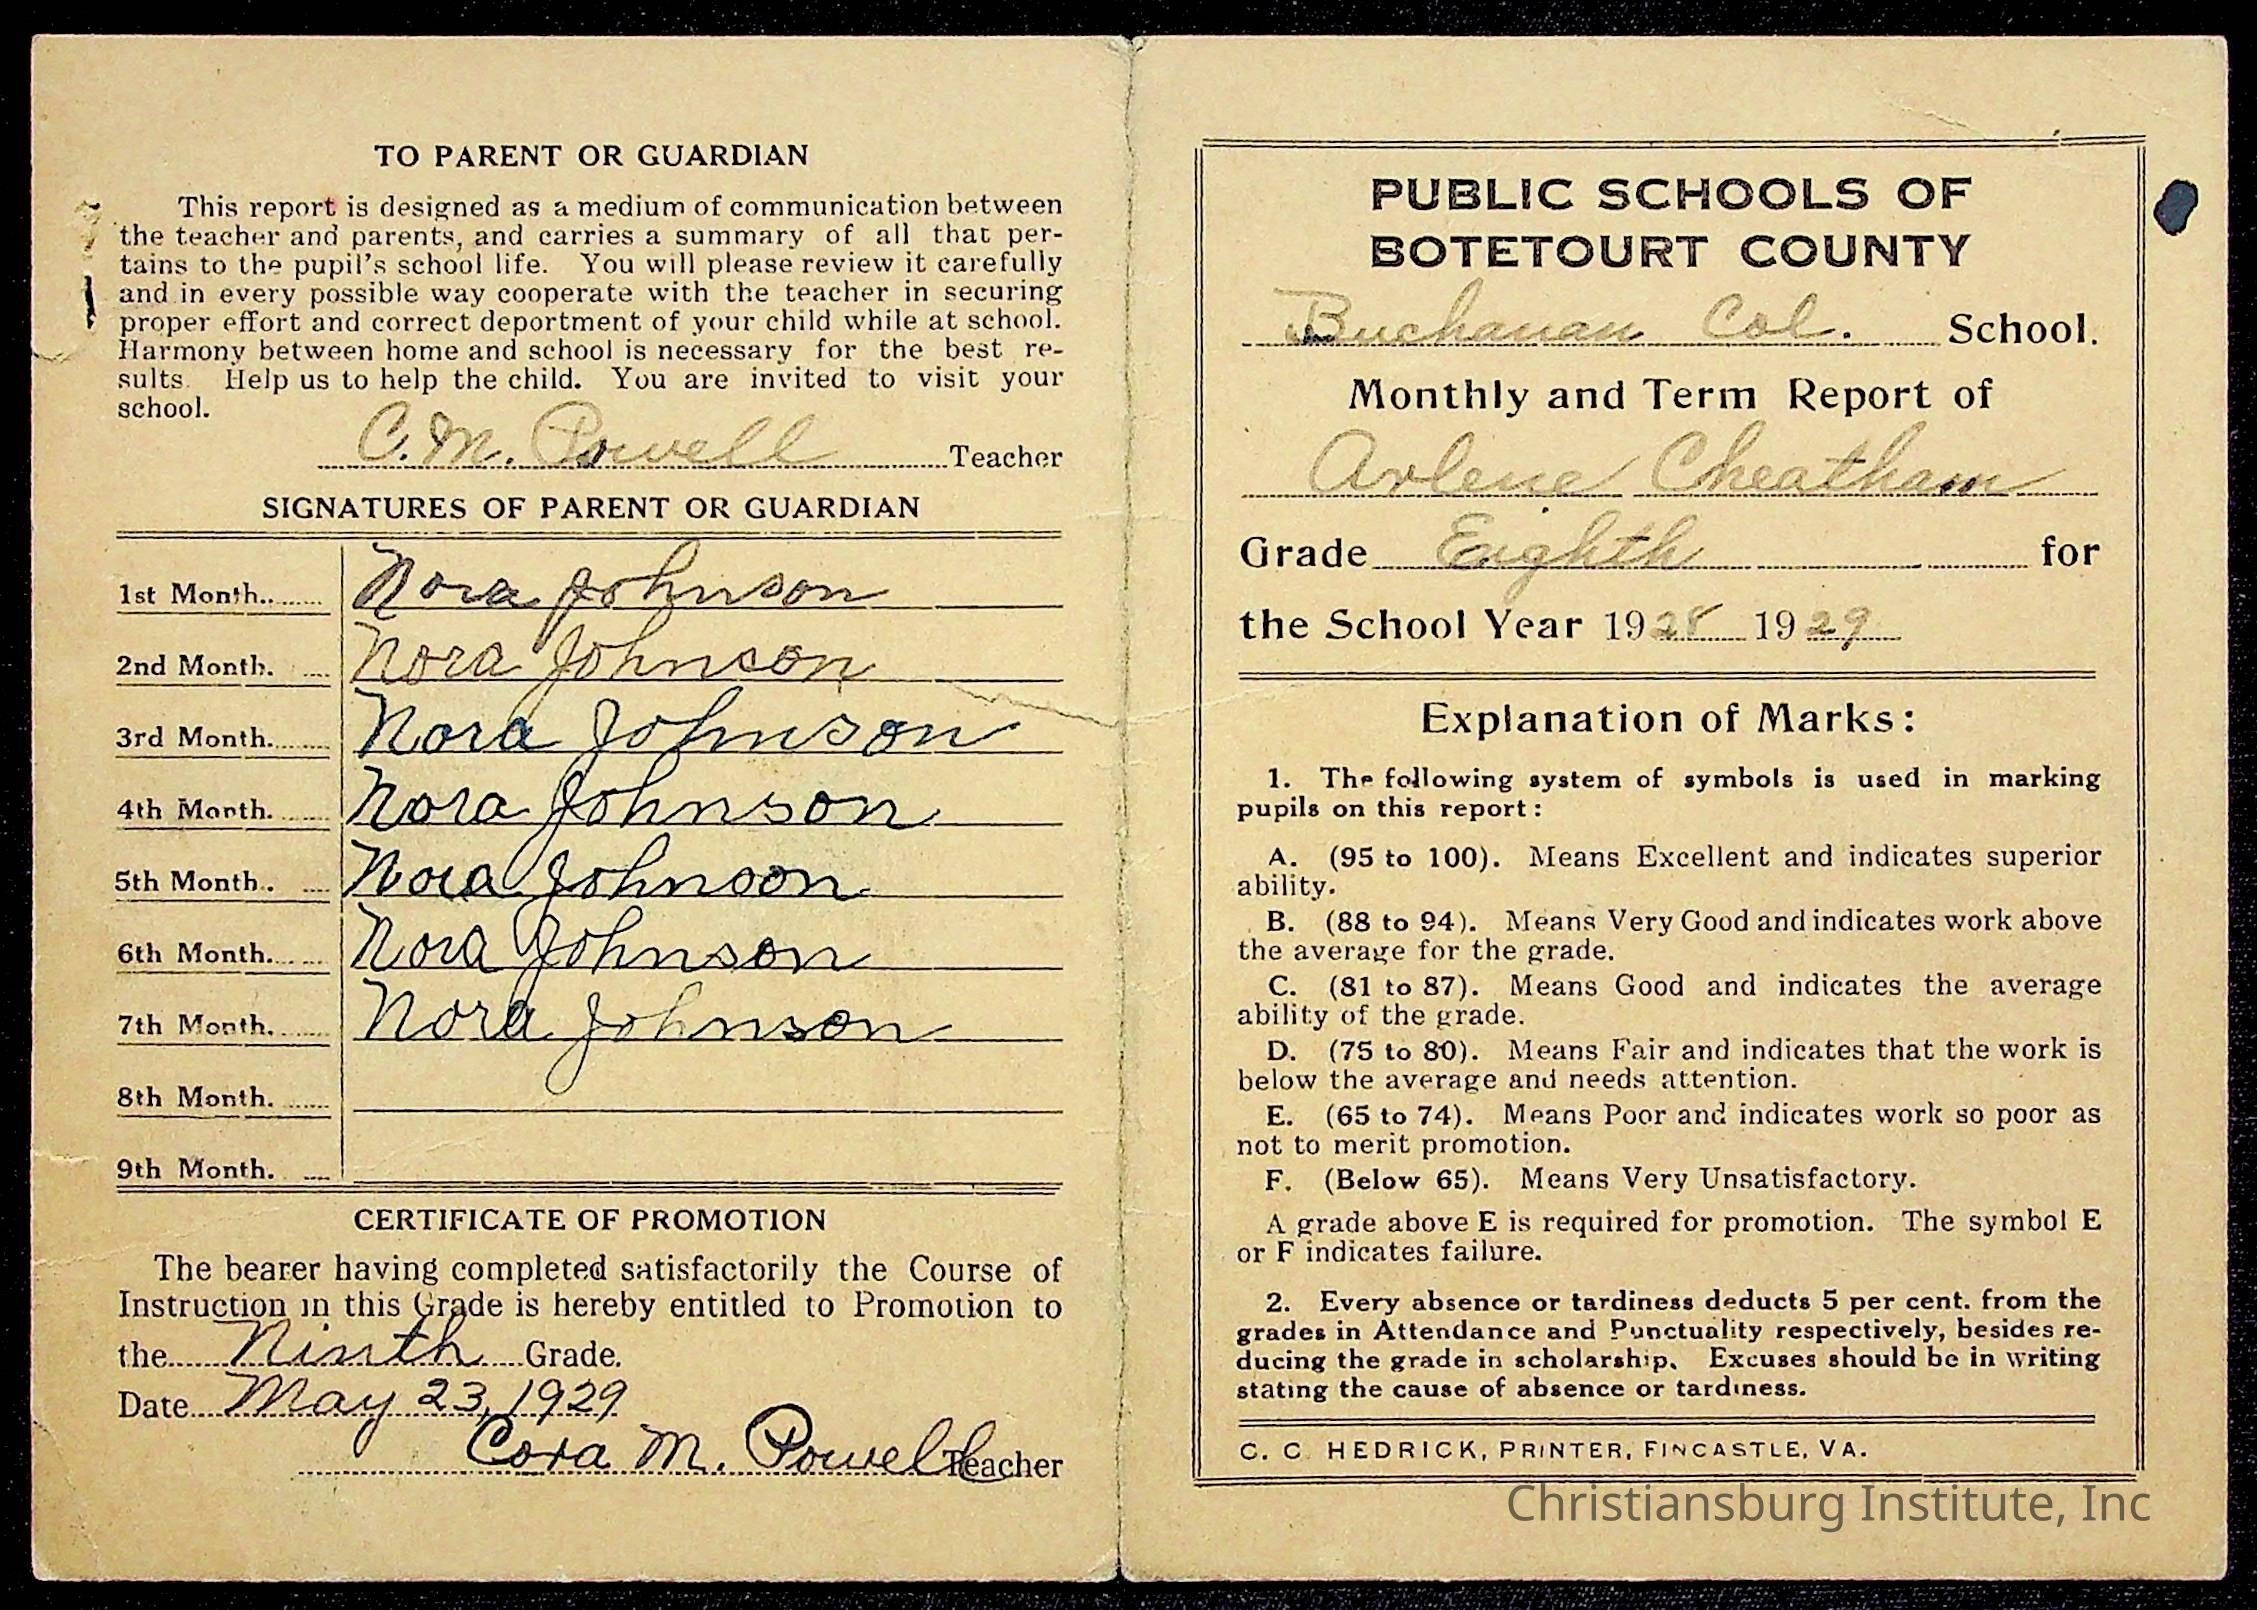 TO PARENT OR GUARDIAN
This report is designed as a medium of communication between
the teacher and parents, and carries a summary of all that per-
tains to the pupil's school life. You will please review it carefully
and in every possible way cooperate with the teacher in securing
proper effort and correct deportment of your child while at school.
Harmony between home and school is necessary for the best re-
sults. Help us to help the child. You are invited to visit your
school.
C. M. Powell Teacher
SIGNATURES OF PARENT OR GUARDIAN
1st Month. Nora Johnson
2nd Month. Nora Johnson
3rd Month. Nora Johnson
4th Month. Nora Johnson
5th Month. Nora Johnson
6th Month. Nora Johnson
7th Month. Nora Johnson
8th Month.
9th Month.
CERTIFICATE OF PROMOTION
The bearer having completed satisfactorily the Course of
Instruction in this Grade is hereby entitled to Promotion to
the Ninth Grade.
Date May 23, 1929
Cora M. Powell Teacher
PUBLIC SCHOOLS OF
BOTETOURT COUNTY
Buchanan Col. School.
Monthly and Term Report of
Arlene Cheatham
Grade Eighth for
the School Year 1928 1929
Explanation of Marks:
1. The following system of symbols is used in marking
pupils on this report:
A. (95 to 100). Means Excellent and indicates superior
ability.
B. (88 to 94). Means Very Good and indicates work above
the average for the grade.
C. (81 to 87). Means Good and indicates the average
ability of the grade.
D. (75 to 80). Means Fair and indicates that the work is
below the average and needs attention.
E. (65 to 74). Means Poor and indicates work so poor as
not to merit promotion.
F. (Below 65). Means Very Unsatisfactory.
A grade above E is required for promotion. The symbol E
or F indicates failure.
2. Every absence or tardiness deducts 5 per cent. from the
grades in Attendance and Punctuality respectively, besides re-
ducing the grade in scholarship. Excuses should be in writing
stating the cause of absence or tardiness.
C. C. HEDRICK, PRINTER, FINCASTLE, VA.
Christiansburg Institute, Inc